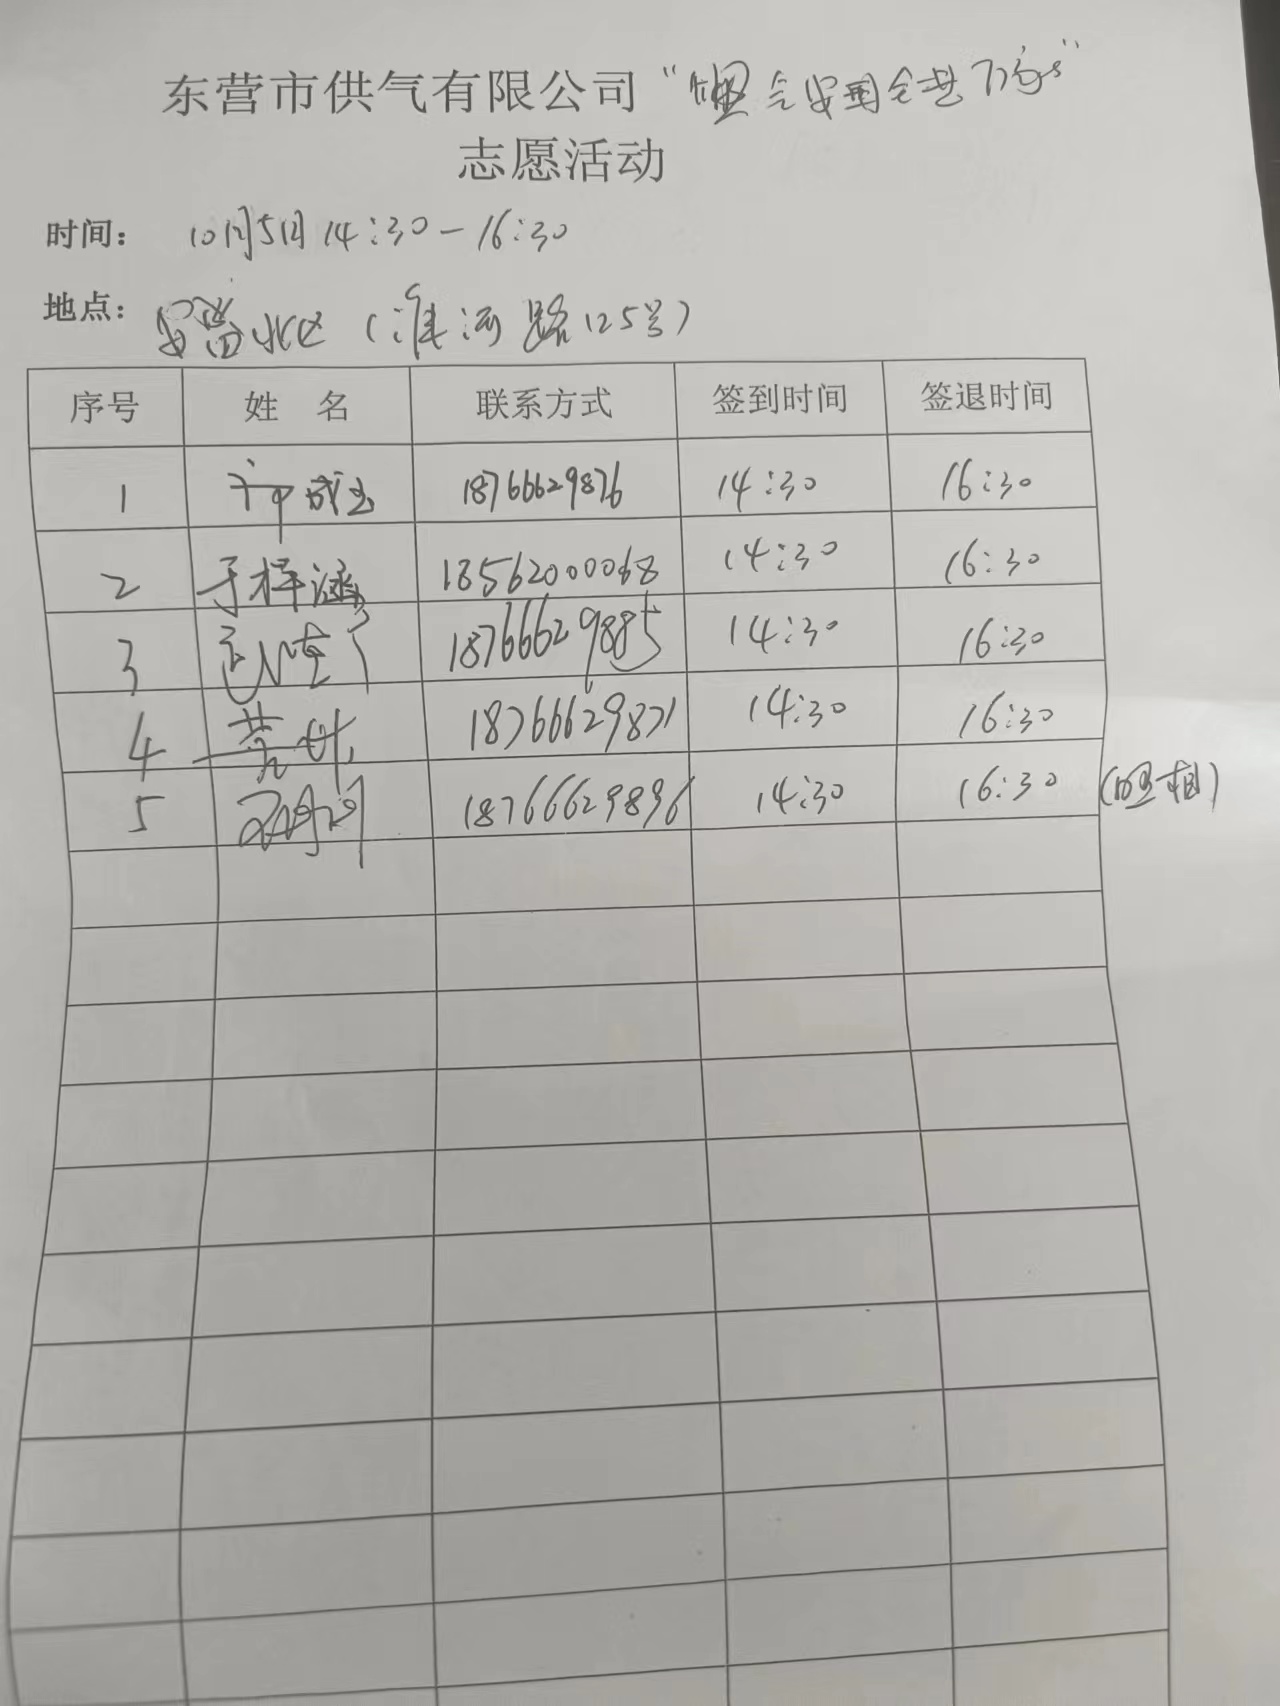 东营市供气有限公司“燃气安全进万家”
志愿活动
时间： 10月5日 14:30-16:30
地点： 安富小区（淮河路125号）
序号 姓 名 联系方式 签到时间 签退时间
1 18766629876 14:30 16:30
2 于梓涵 18562000068 14:30 16:30
3 18766629885 14:30 16:30
4 18766629871 14:30 16:30
5 18766629896 14:30 16:30 (照相)